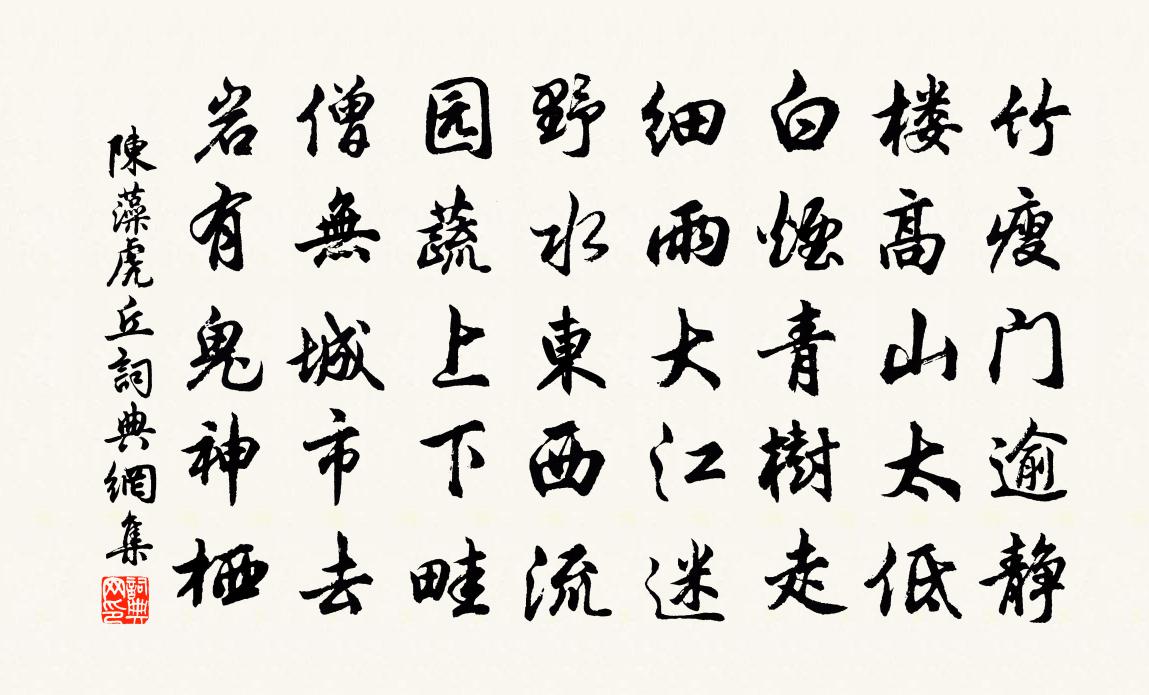 竹瘦门逾静
楼高山太低
白煙青樹走
细雨大江迷
野水東西流
园蔬上下畦
僧無城市去
岩有鬼神栖
陳藻虎丘詞典網集
詞典网印